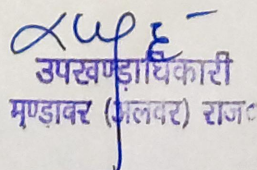 उपखण्ड़ाधिकारी
मुण्ड़ावर (अलवर) राज०